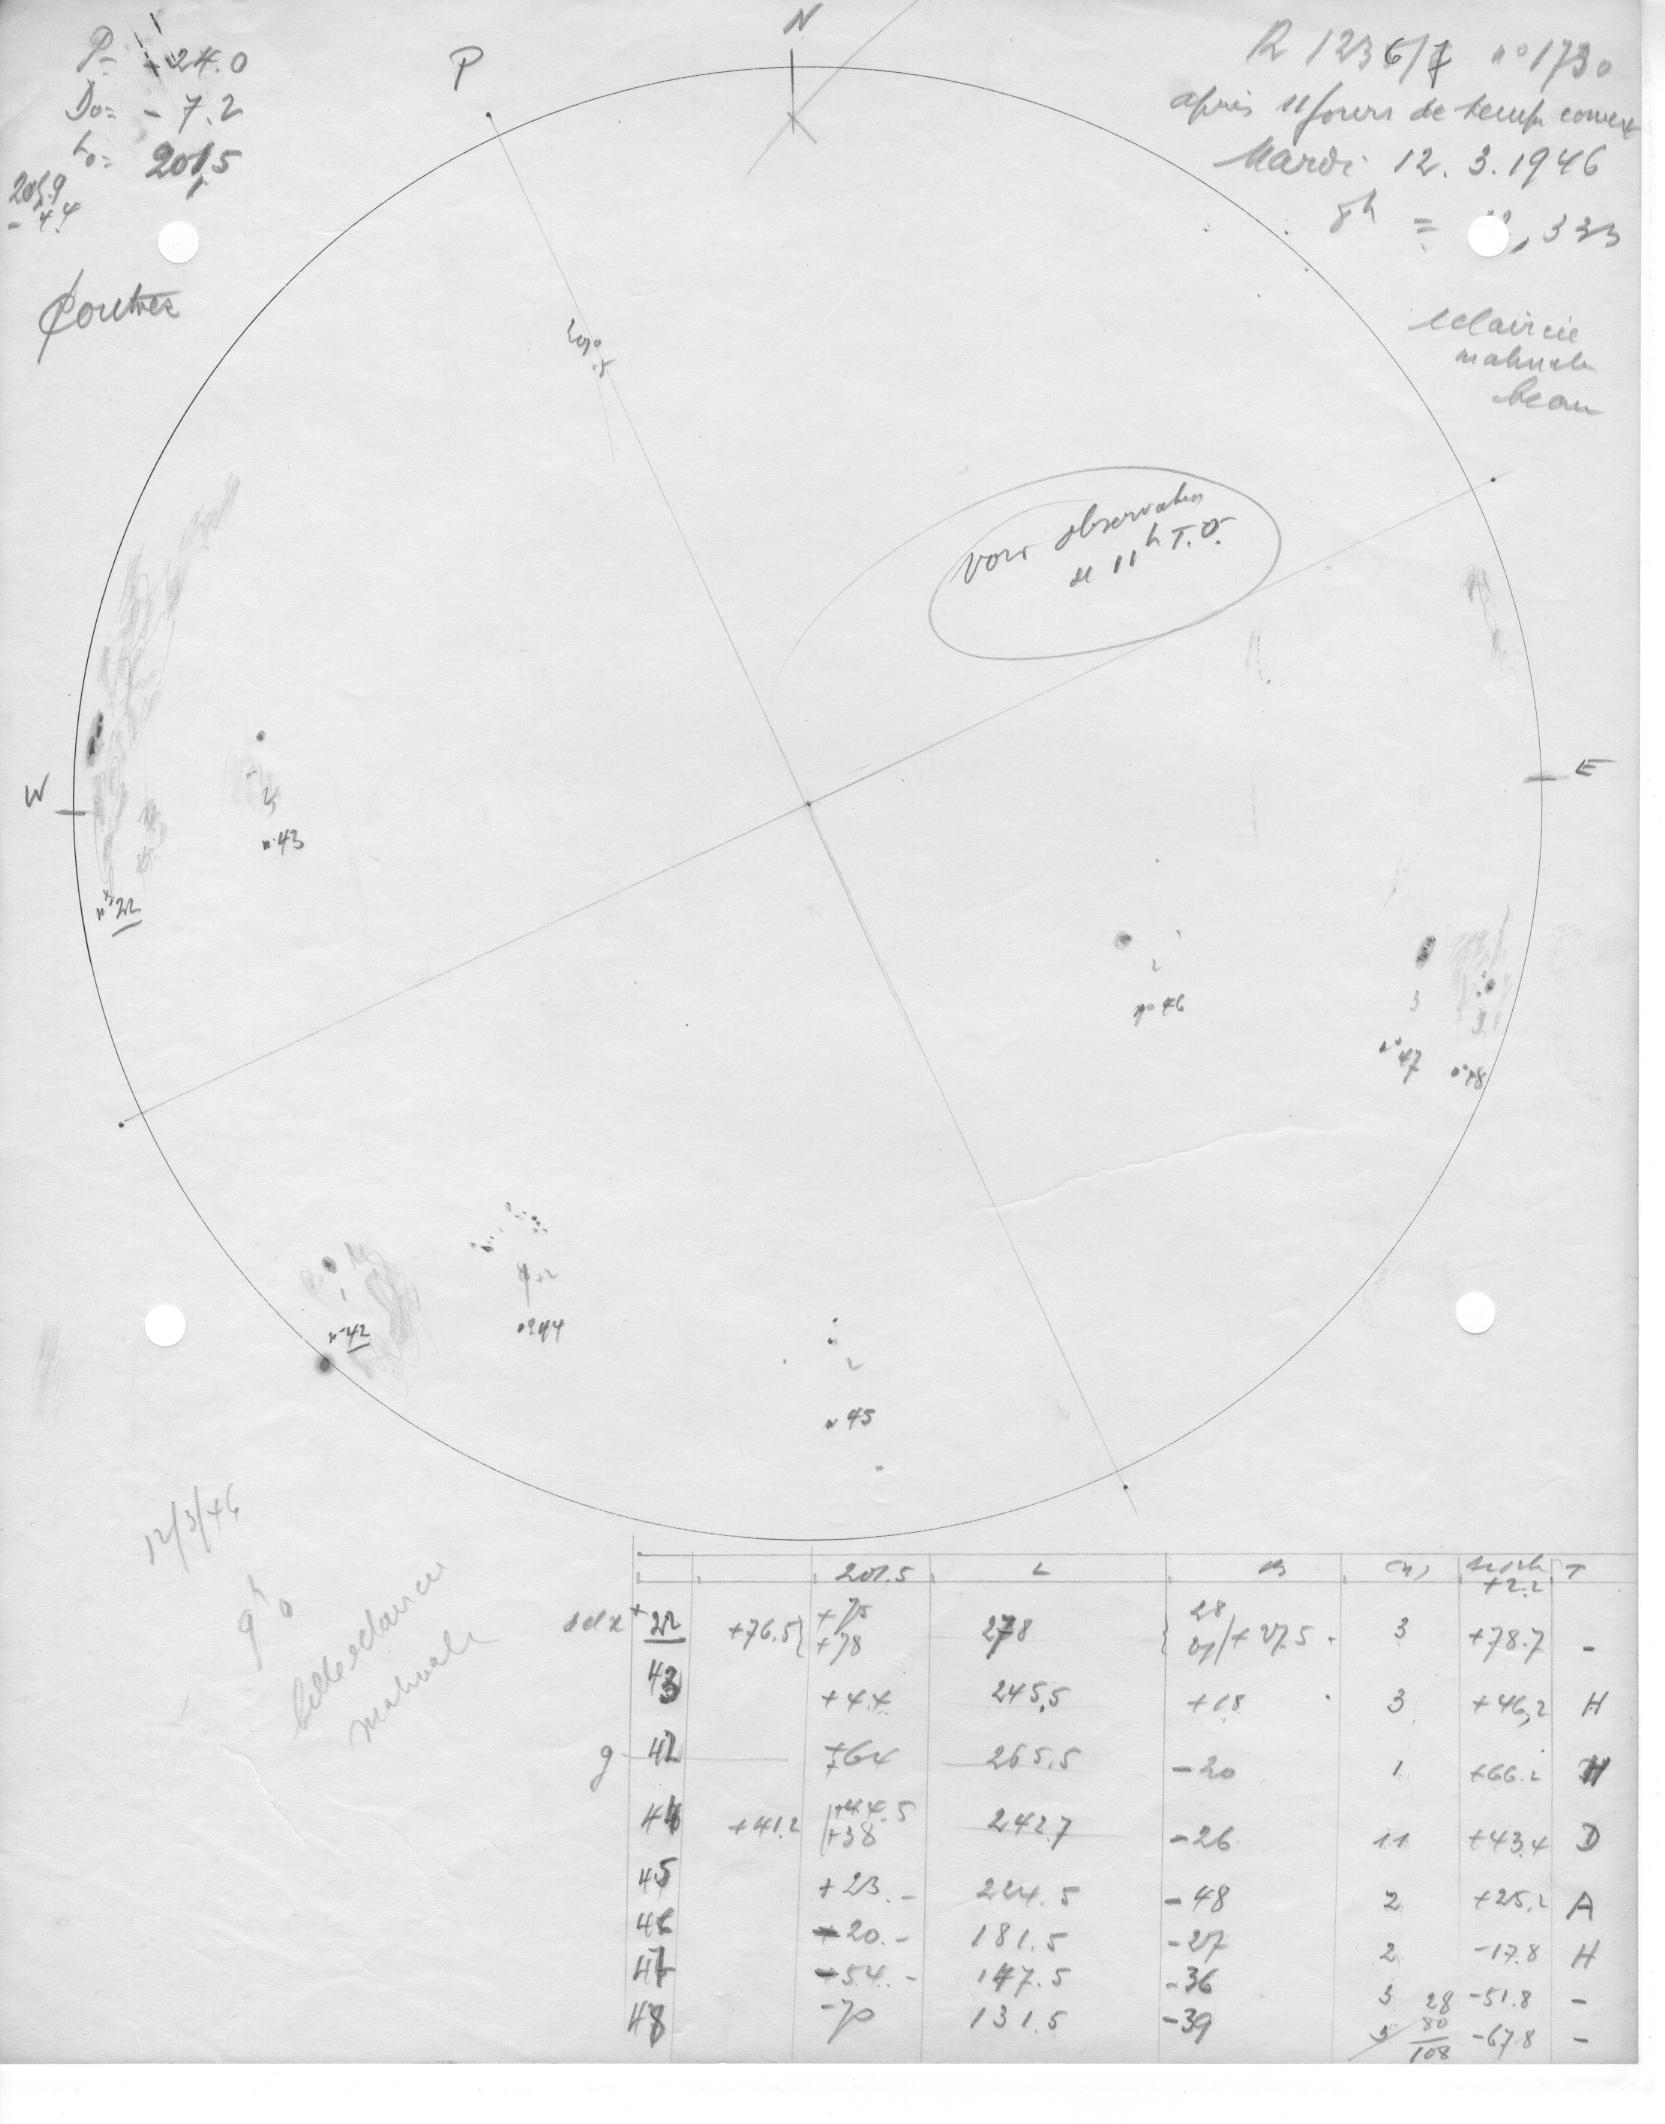 N
P
P= -24.0
Do= - 7.2
Lo= 201,5
- 4.4
R 1236/7 n° 1730
après 11 jours de temps couvert
Mardi 12.3.1946
8h = ,333
eclaircie
matinale
beau
voir observation
de 11h T.U.
W
E
n° 43
n° 22
2
n° 46
3
n° 47
n° 48
1
n° 42
n° 44
2
n° 45
12/3/46
9h0
belle eclaircie
matinale
201.5 L B T
+2.2
22 +76.5 { +75 +78 278 28 27 +27.5 3 +78.7 -
43 +44 245,5 +18 3 +46,2 H
g 42 +64 265.5 -20 1 +66.2 H
44 +41.2 +44.5 +38 242.7 -26 11 +43.4 D
45 +23.- 224.5 -48 2 +25.2 A
46 -20.- 181.5 -27 2 -17.8 H
47 -54.- 147.5 -36 3 28 -51.8 -
48 -70 131.5 -39 3 80 -67.8 -
108